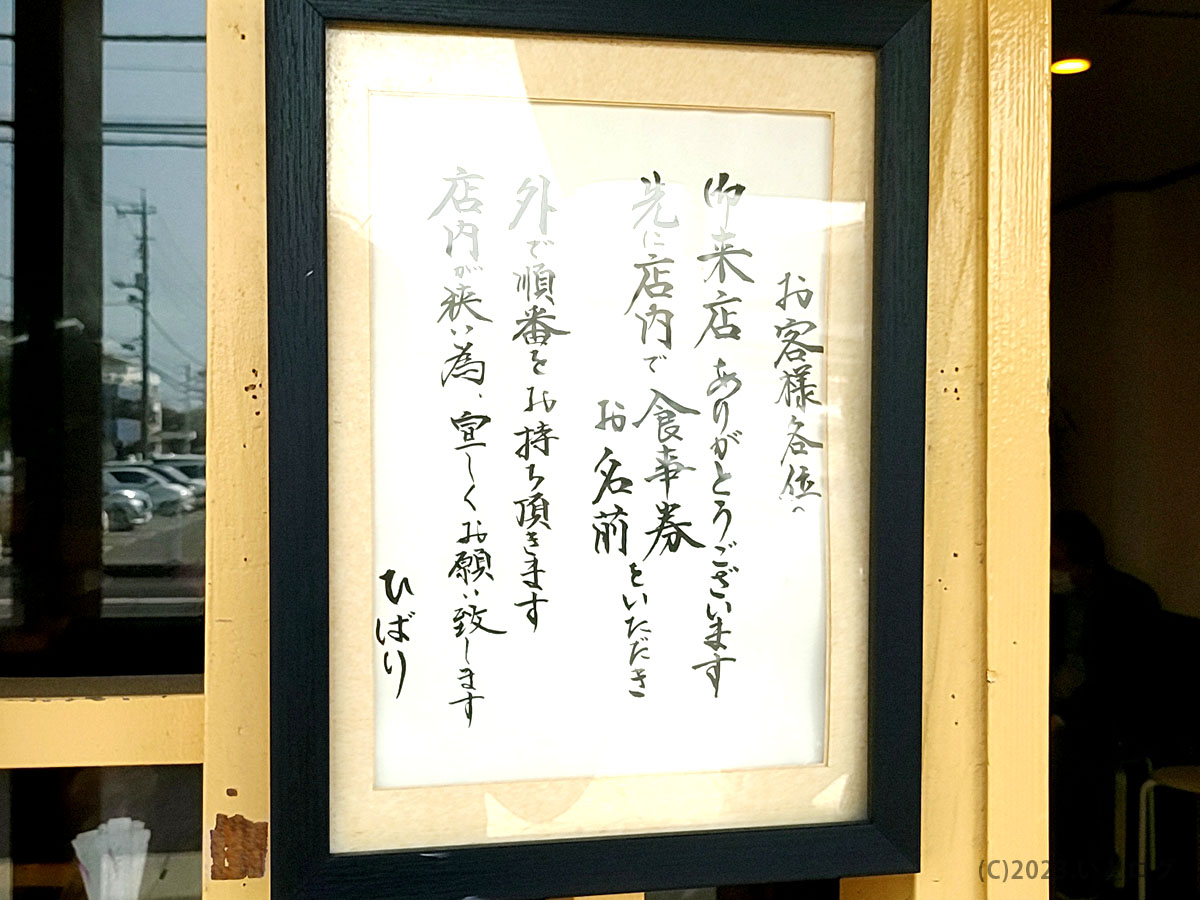 お客様各位へ
御来店ありがとうございます
先に店内で食事券
お名前をいただき
外で順番をお持ち頂きます
店内が狭い為、宜しくお願い致します
ひばり
(C)202